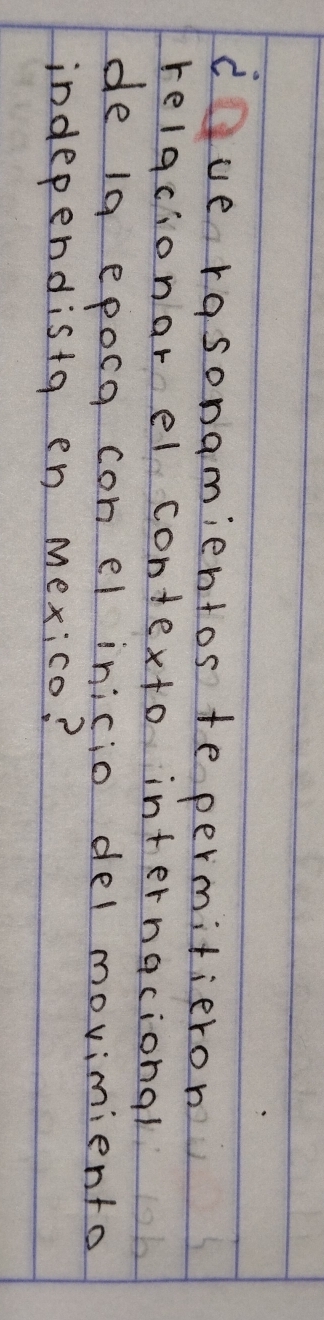 ¿Que rasonamientos te permitieron
relacionar el contexto internacional
de la epoca con el inicio del movimiento
independista en Mexico?